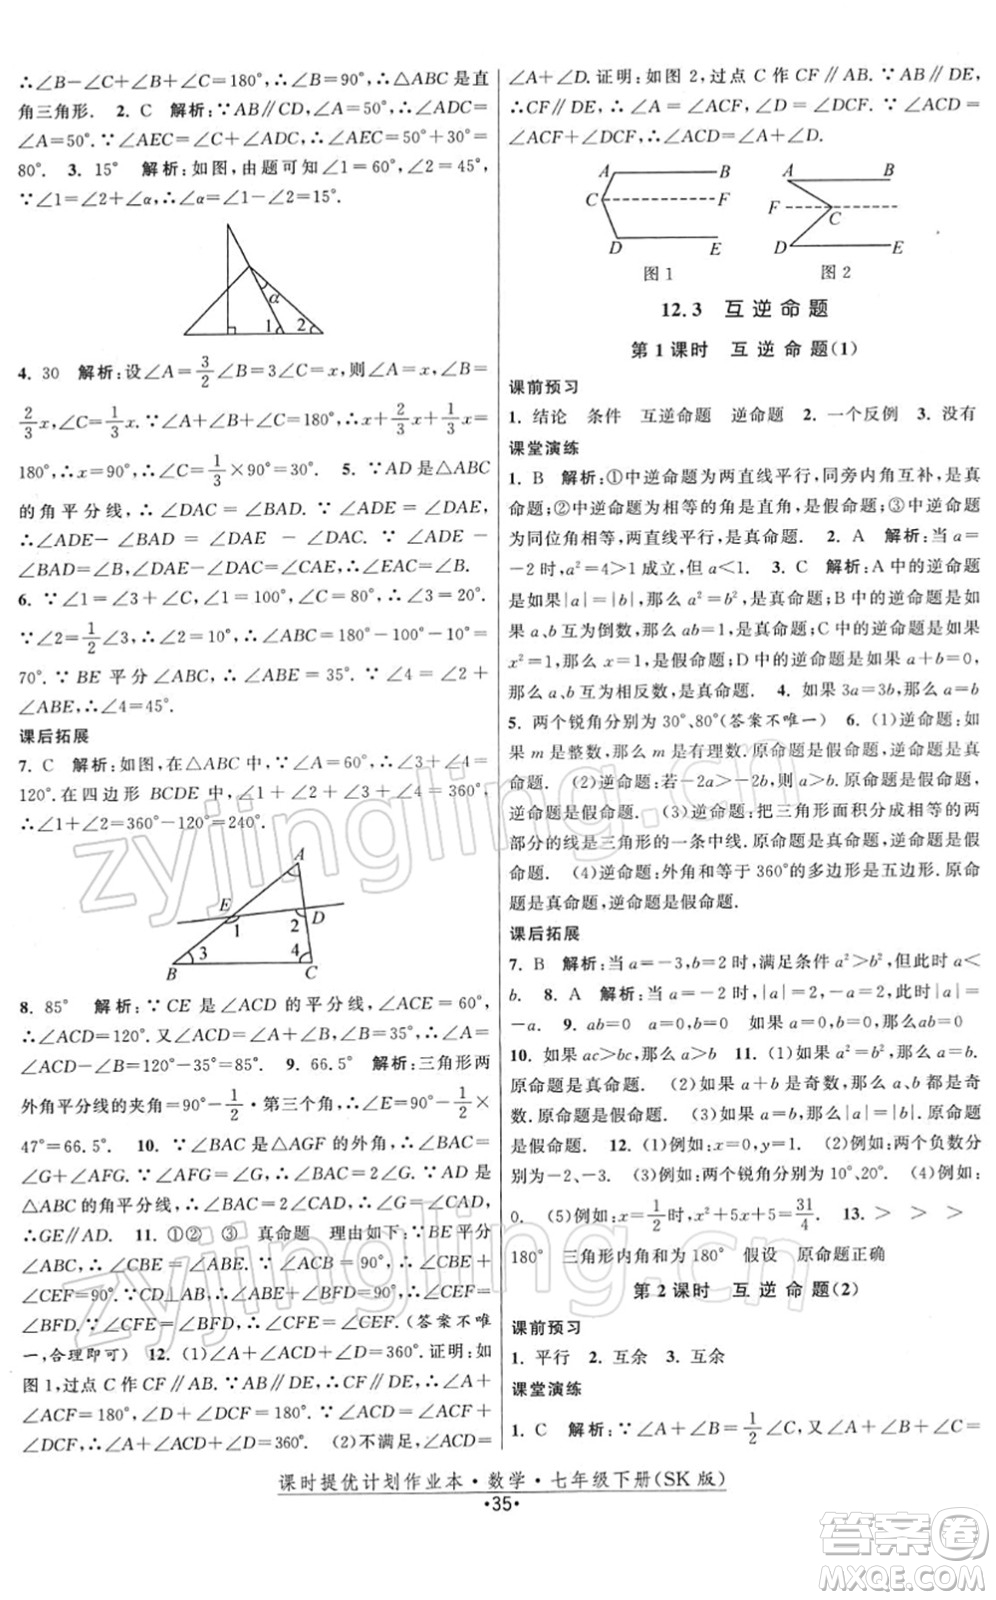 ∴∠B-∠C+∠B+∠C=180°,∴∠B=90°,∴△ABC是直
角三角形. 2. C 解析:∵AB∥CD,∠A=50°,∴∠ADC=
∠A=50°.∵∠AEC=∠C+∠ADC,∴∠AEC=50°+30°=
80°. 3. 15° 解析:如图,由题可知∠1=60°,∠2=45°,
∵∠1=∠2+∠α,∴∠α=∠1-∠2=15°.
α
1 2
4. 30 解析:设∠A=3/2∠B=3∠C=x,则∠A=x,∠B=
2/3x,∠C=1/3x.∵∠A+∠B+∠C=180°,∴x+2/3x+1/3x=
180°,∴x=90°,∴∠C=1/3×90°=30°. 5. ∵AD是∠BAC
的角平分线,∴∠DAC=∠BAD.∵∠ADE=∠DAE,
∴∠ADE-∠BAD=∠DAE-∠DAC.∵∠ADE-
∠BAD=∠B,∠DAE-∠DAC=∠CAE,∴∠CAE=∠B.
6. ∵∠1=∠3+∠C,∠1=100°,∠C=80°,∴∠3=20°.
∵∠2=1/2∠3,∴∠2=10°,∴∠ABC=180°-100°-10°=
70°.∵BE平分∠ABC,∴∠ABE=35°.∵∠4=∠2+
∠ABE,∴∠4=45°.
课后拓展
7. C 解析:如图,在△ABC中,∵∠A=60°,∴∠3+∠4=
120°.在四边形BCDE中,∵∠1+∠2+∠3+∠4=360°,
∴∠1+∠2=360°-120°=240°.
A
E
1 2 D
3 4
B C
8. 85° 解析:∵CE是∠ACD的平分线,∠ACE=60°,
∴∠ACD=120°.又∵∠ACD=∠A+∠B,∠B=35°,∴∠A=
∠ACD-∠B=120°-35°=85°. 9. 66.5° 解析:三角形两
外角平分线的夹角=90°-1/2·第三个角,∴∠E=90°-1/2×
47°=66.5°. 10. ∵∠BAC是△AGF的外角,∴∠BAC=
∠G+∠AFG.∵∠AFG=∠G,∴∠BAC=2∠G.∵AD是
△ABC的角平分线,∴∠BAC=2∠CAD,∴∠G=∠CAD,
∴GE∥AD. 11. ①② ③ 真命题 理由如下:∵BE平分
∠ABC,∴∠CBE=∠ABE.∵AB∥CD,∴∠ABE=
∠CEF=90°.∵CD⊥AB,∴∠CBE+∠CEB=90°,∠ABE+
∠BFD=90°,∴∠CEF=∠BFD.∵∠CFE=∠BFD,∴∠CFE=∠CEF.(答案不唯
一,合理即可) 12. (1)∠A+∠ACD+∠D=360°.证明:如
图1,过点C作CF∥AB.∵AB∥DE,∴CF∥DE,∴∠A+
∠ACF=180°,∠D+∠DCF=180°.∵∠ACD=∠ACF+
∠DCF,∴∠A+∠ACD+∠D=360°. (2)不满足,∠ACD=
∠A+∠D.证明:如图2,过点C作CF∥AB.∵AB∥DE,
∴CF∥DE,∴∠A=∠ACF,∠D=∠DCF.∵∠ACD=
∠ACF+∠DCF,∴∠ACD=∠A+∠D.
A B
C F
D E
图1
A B
F C
D E
图2
12.3 互逆命题
第1课时 互逆命题(1)
课前预习
1. 结论 条件 互逆命题 逆命题 2. 一个反例 3. 没有
课堂演练
1. B 解析:①中逆命题为两直线平行,同旁内角互补,是真
命题;②中逆命题为相等的角是直角,是假命题;③中逆命题
为同位角相等,两直线平行,是真命题. 2. A 解析:当a=
-2时,a²=4>1成立,但a<1. 3. C 解析:A中的逆命题
是如果|a|=|b|,那么a²=b²,是真命题;B中的逆命题是如
果a、b互为倒数,那么ab=1,是真命题;C中的逆命题是如果
x²=1,那么x=1,是假命题;D中的逆命题是如果a+b=0,
那么a、b互为相反数,是真命题. 4. 如果3a=3b,那么a=b
5. 两个锐角分别为30°、80°(答案不唯一) 6. (1)逆命题:如
果m是整数,那么m是有理数.原命题是假命题,逆命题是真
命题. (2)逆命题:若-2a>-2b,则a>b.原命题是假命题,
逆命题是假命题. (3)逆命题:把三角形面积分成相等的两
部分的线是三角形的一条中线.原命题是真命题,逆命题是假
命题. (4)逆命题:外角和等于360°的多边形是五边形.原命
题是真命题,逆命题是假命题.
课后拓展
7. B 解析:当a=-3,b=2时,满足条件a²>b²,此时a<
b. 8. A 解析:当a=-2时,|a|=2,此时|a|=
-a. 9. ab=0 a=0 如果a=0,那么ab=0
10. 如果ac>bc,那么a>b 11. (1)如果a²=b²,那么a=b.
原命题是真命题. (2)如果a+b是奇数,那么a、b都是奇
数.原命题是假命题. (3)如果a=b,那么|a|=|b|.原命题
是假命题. 12. (1)例如:x=0,y=1. (2)例如:两个负数分
别为-2、-3. (3)例如:两个锐角分别为10°、20°. (4)例如:
0. (5)例如:x=1/2时,x²+5x+5=31/4. 13. > > >
180° 三角形内角和为180° 假设 原命题正确
第2课时 互逆命题(2)
课前预习
1. 平行 2. 互余 3. 互余
课堂演练
1. C 解析:∵∠A+∠B=1/2∠C,又∠A+∠B+∠C=
课时提优计划作业本·数学·七年级下册(SK版)
·35·
zyjingling.cn
zyjingling.cn
答案圈
MXQE.COM